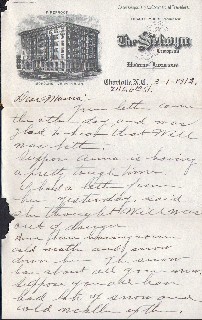 FIREPROOF
The Selwyn
European
Modern Luxurious
Charlotte, N.C. 2-1-1912
Dear Mamma:
Your letter came
the other day and was
glad to hear that Will
was better.
Suppose Anna is having
a pretty tough time.
I had a letter from
her yesterday, said
she thought Will was
out of danger.
Have been having some
cold weather and snow
down here. The snow
has about all gone now.
Suppose you have been
had lots of snow and
cold weather up there.